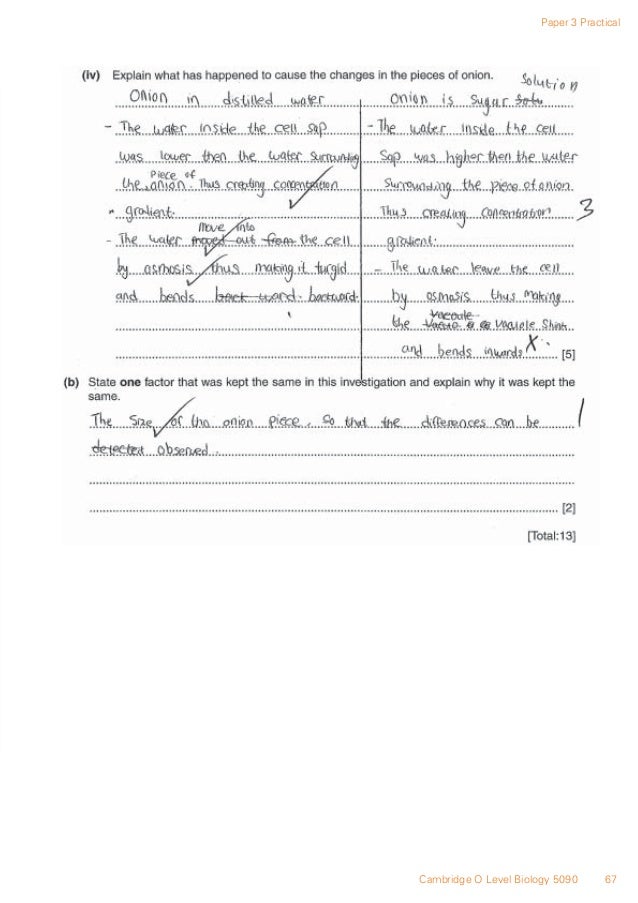 Paper 3 Practical
(iv) Explain what has happened to cause the changes in the pieces of onion.
Solution
Onion in distilled water
- The water inside the cell sap
was lower then the water surrounding
piece of
the onion. Thus creating concentration
gradient.
move into
- The water moved out from the cell
by osmosis, thus making it turgid
and bends back ward. backward.
onion is sugar solu
- The water inside the cell
sap was higher then the water
surrounding the piece of onion.
Thus creating concentration
3
gradient.
- The water leave the cell
by osmosis thus making
vacoule
the vacuole shink
and bends inwards X
[5]
(b) State one factor that was kept the same in this investigation and explain why it was kept the
same.
The size of the onion piece, so that the differences can be
1
detected observed.
[2]
[Total:13]
Cambridge O Level Biology 5090 67